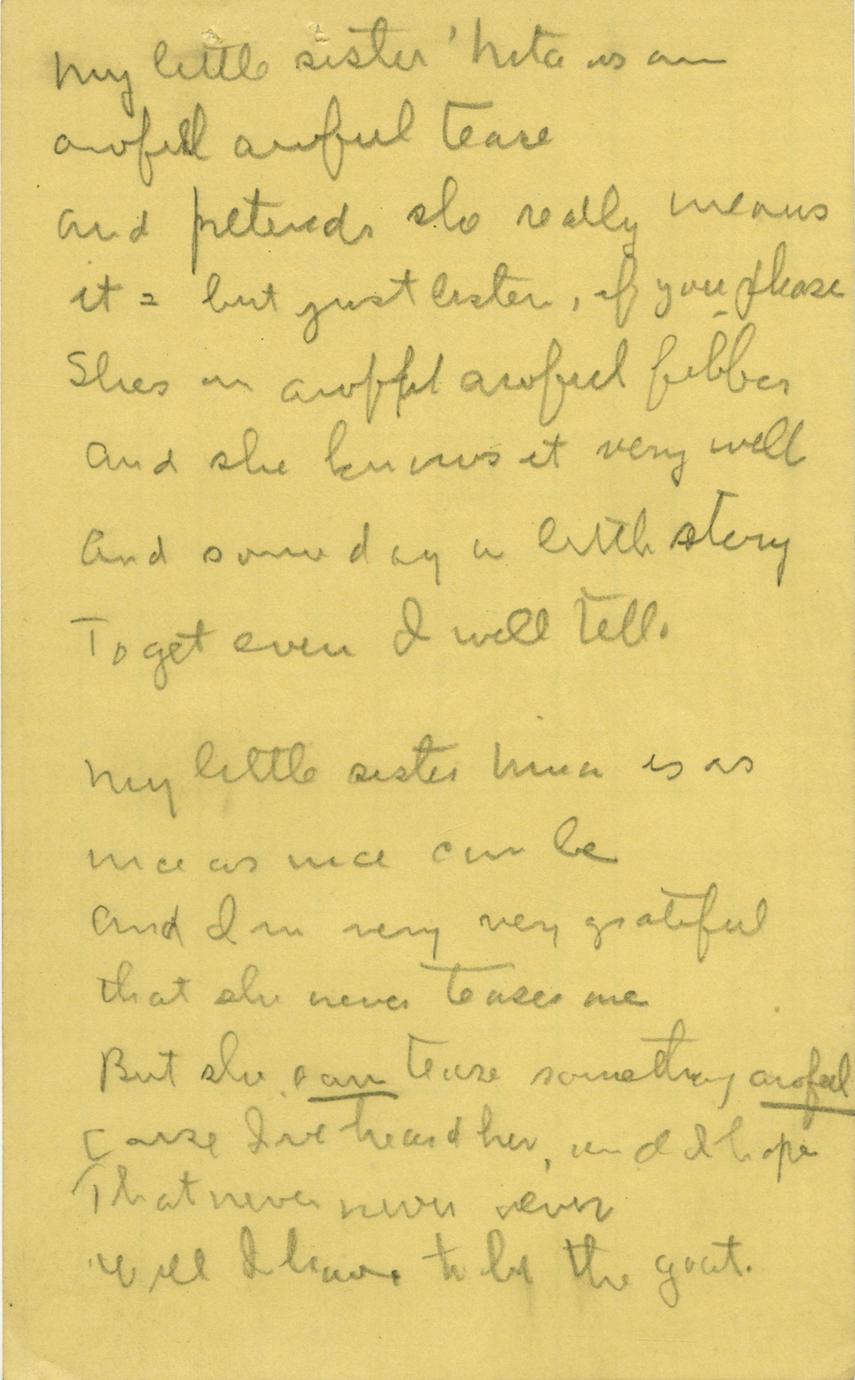 My little sister 'Nita is an
awful awful tease
And pretends she really means
it = but just listen, if you please
Shes an awful awful fibber
And she knows it very well
And some day a little story
To get even I will tell.
My little sister Nina is as
nice as nice can be
And Im very very grateful
that she never teases me
But she can tease something awful
Cause I've heard her, and I hope
That never never never
Will I have to be the goat.